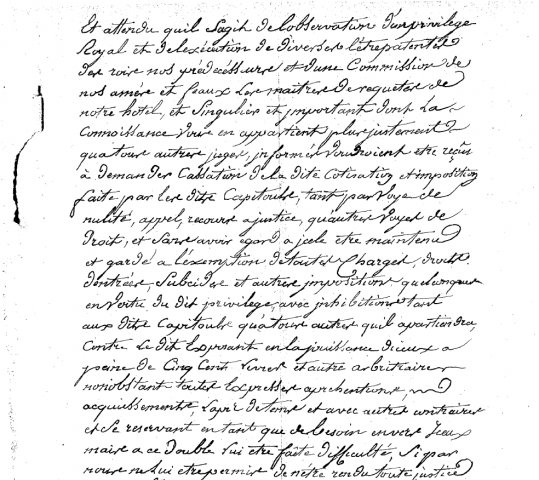 Et attendu quil Sagit de lobservation d'un privilege
Royal et de lexécution de diverses lettre patentes
des rois nos prédecessurs et dune Commission de
nos amér et feaux les maitres de requetes de
notre hotel, et Singulier et important dont la
Connoissance vous en appartient plus justement
qua tous autres juges, informér voudroient etre reçus
a demander Cassation de la dite Cotisation et imposition
faite par les dits Capitouls, tant par Voye de
nulité, appel, recours a justice, qu'autres Voyes de
Droit, et Sans avoir egard a jcele etre maintenu
et gardé a l'exemption de toutes Charges, droits
dentrées, Subcides et autres jmpositions quelconques
en Vertu du dit privilege, avec jnhibitions tant
aux dits Capitouls qu'a tous autres quil apartiendra,
Contre le dit Exposant en la jouissance diceux a
paine de Cinq Cents livres et autre arbitraire
nonobstant toutes Expresses aprehentions,
acquiessements, Laps de tems et avec autres contraires
et Se reservant en tant que de besoin envers jceux
mais a ce double lui etre faite difficulté, Si par
nous ne lui etre permis de n'étre rendu toute justice